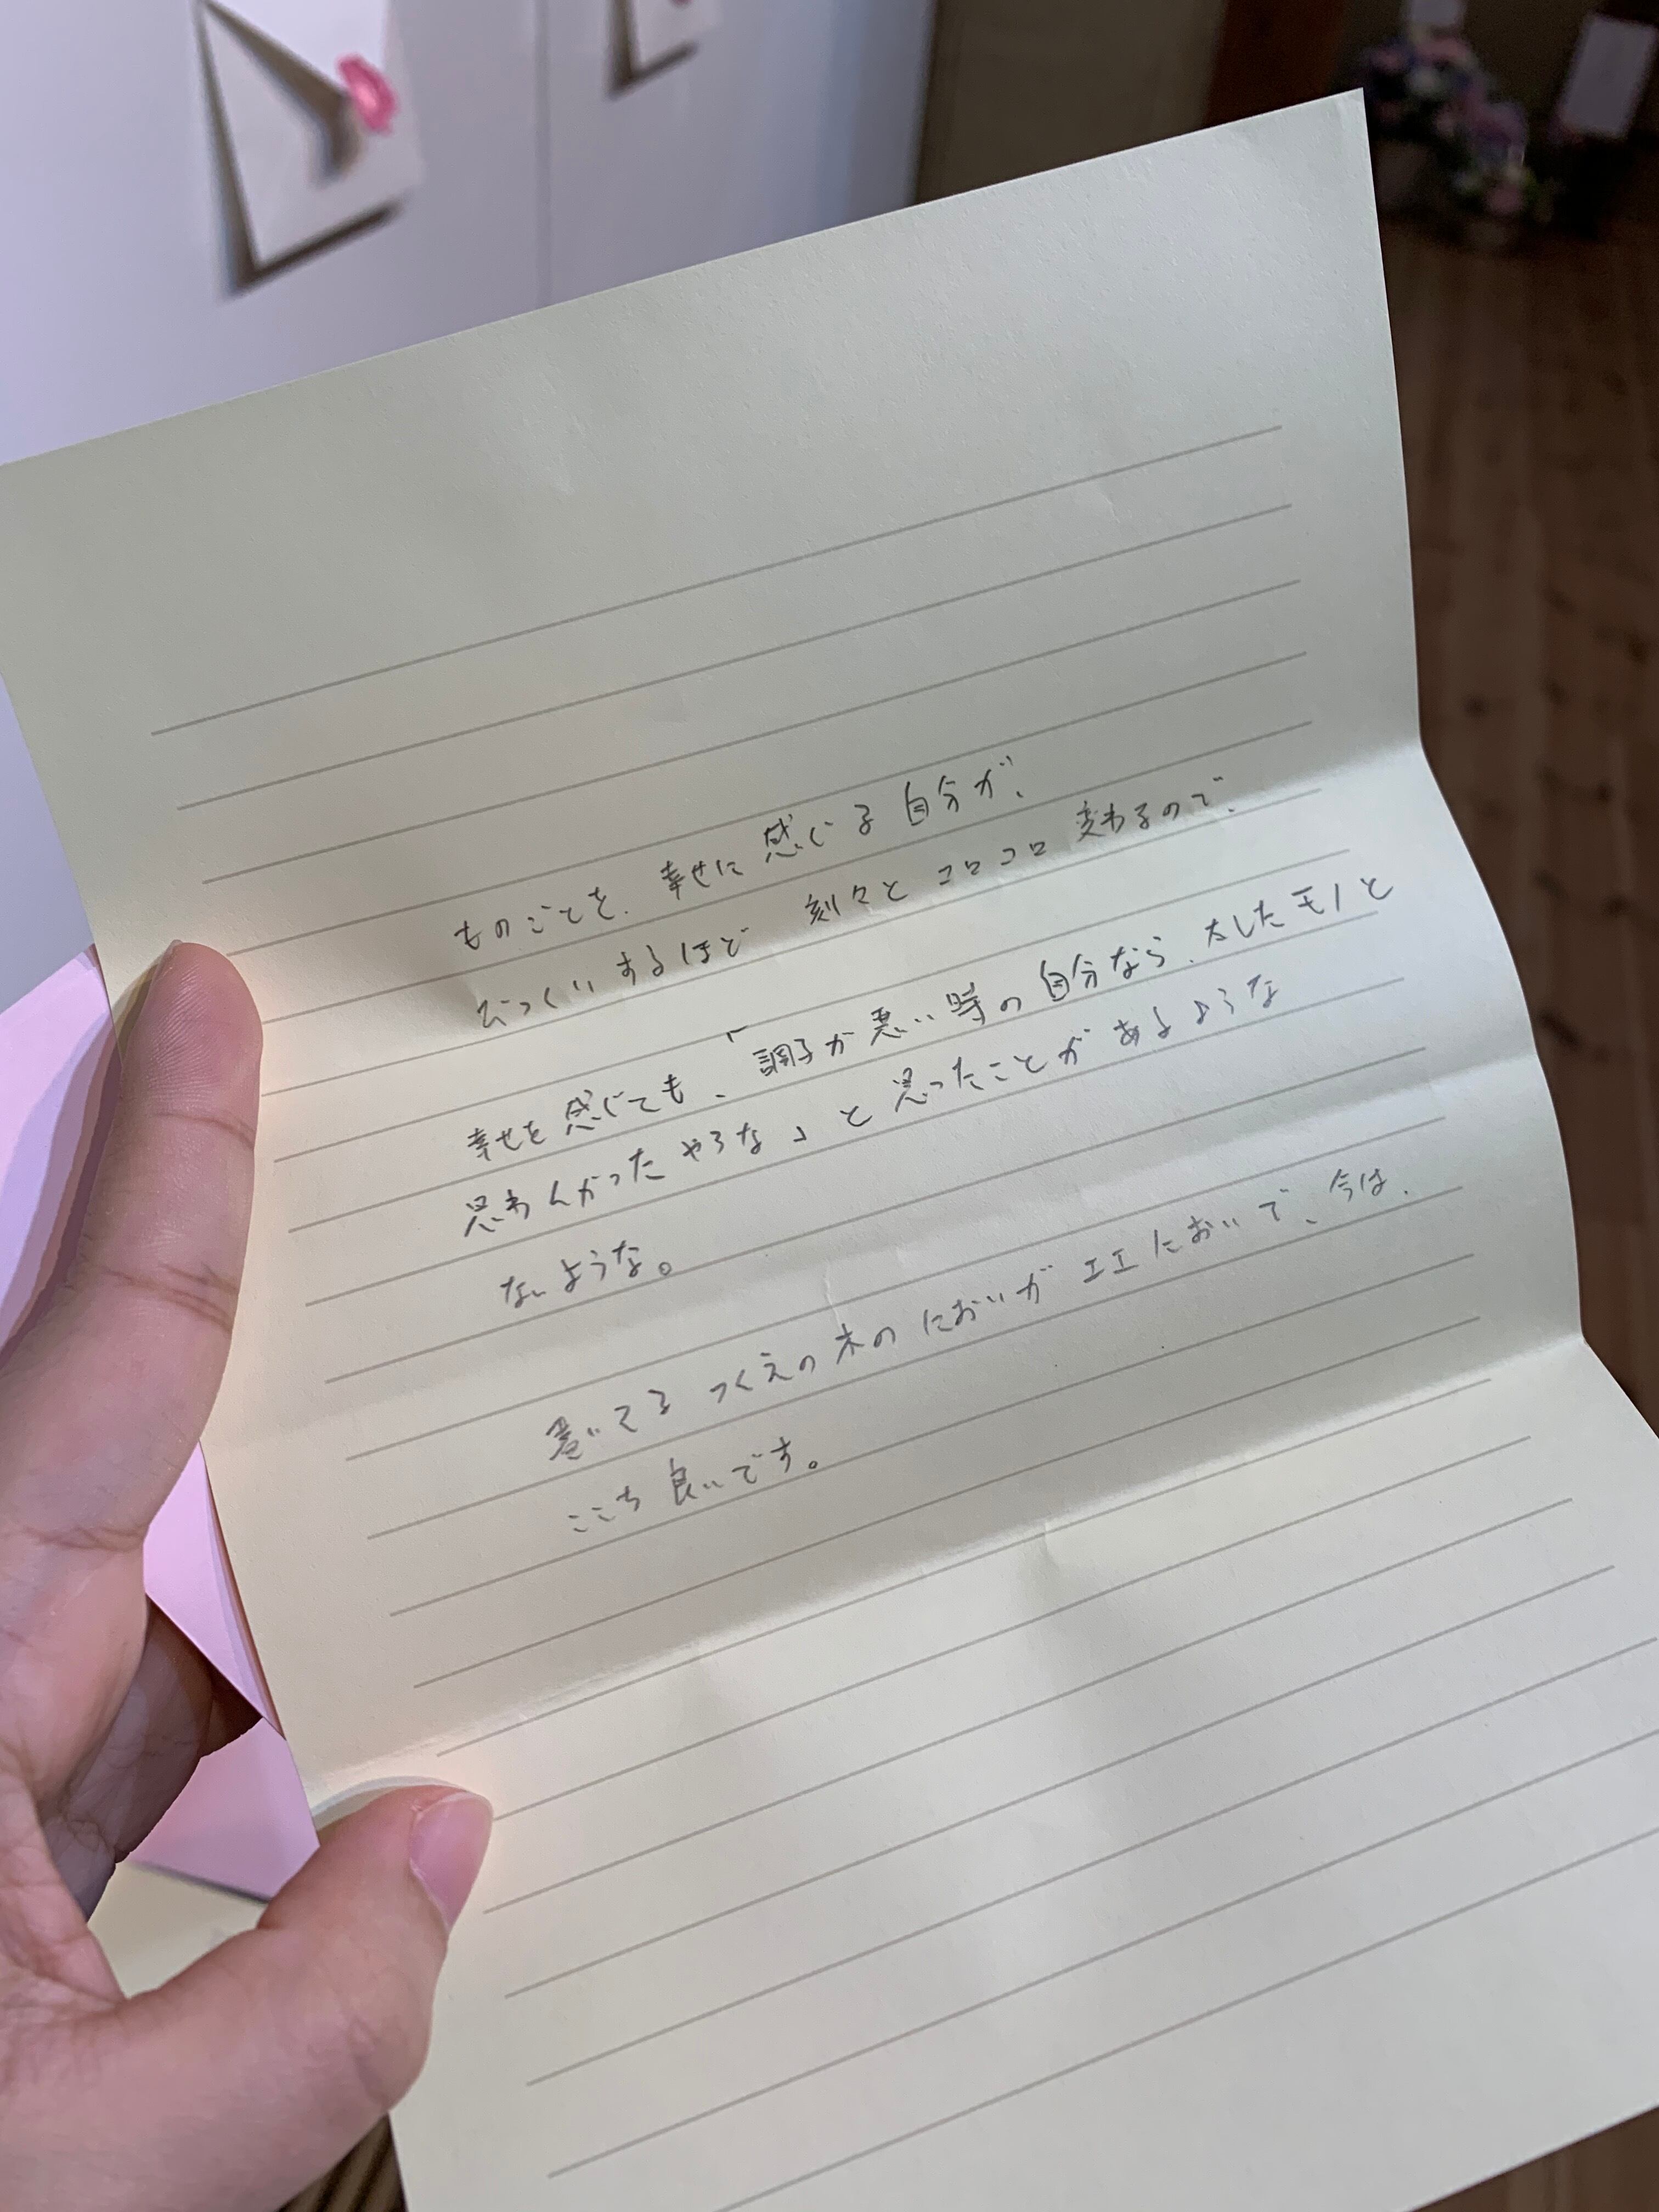 ものごとを、幸せに感じる自分が、
びっくりするほど 刻々と コロコロ 変わるので、
幸せを感じても、「調子が悪い時の自分なら、大したモノと
思わんかったやろな」と思ったことがあるような
ないような。
書いてる つくえの木の においが エエ においで、今は、
ここち良いです。